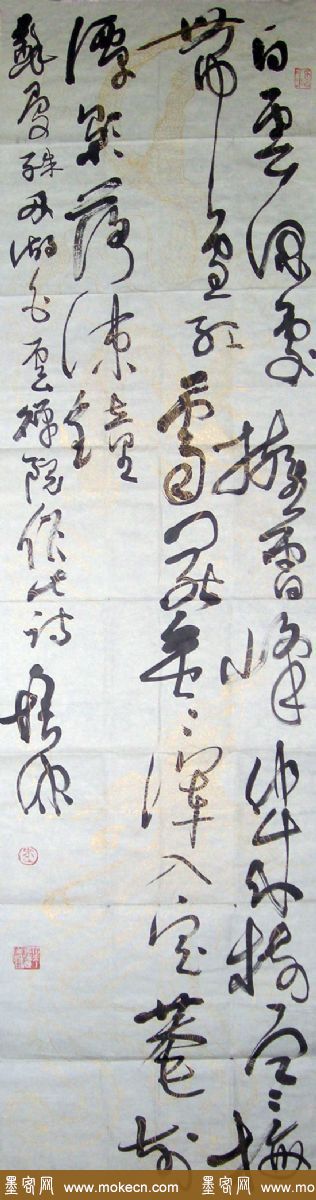 白云深处拥雷峰几树寒梅
带雪红斋罢垂垂浑入定庵前
潭影落疏钟
苏曼殊西湖白云禅院作此诗
墨客网 www.mokecn.com 墨客网 www.mokecn.com